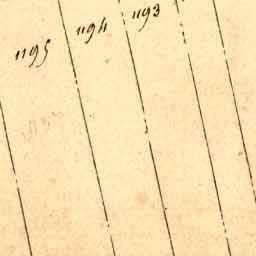 1195 1194 1193